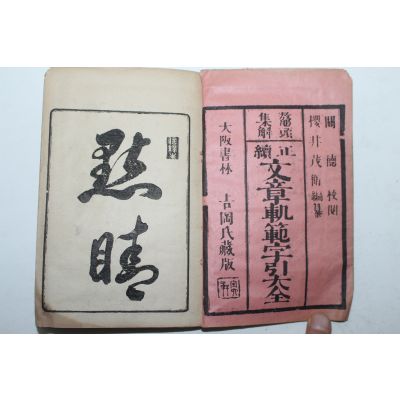 關德校閲
櫻井茂衛編纂
鼇頭集解
正續文章軌範字引大全
大阪書林 吉岡氏藏版
點睛